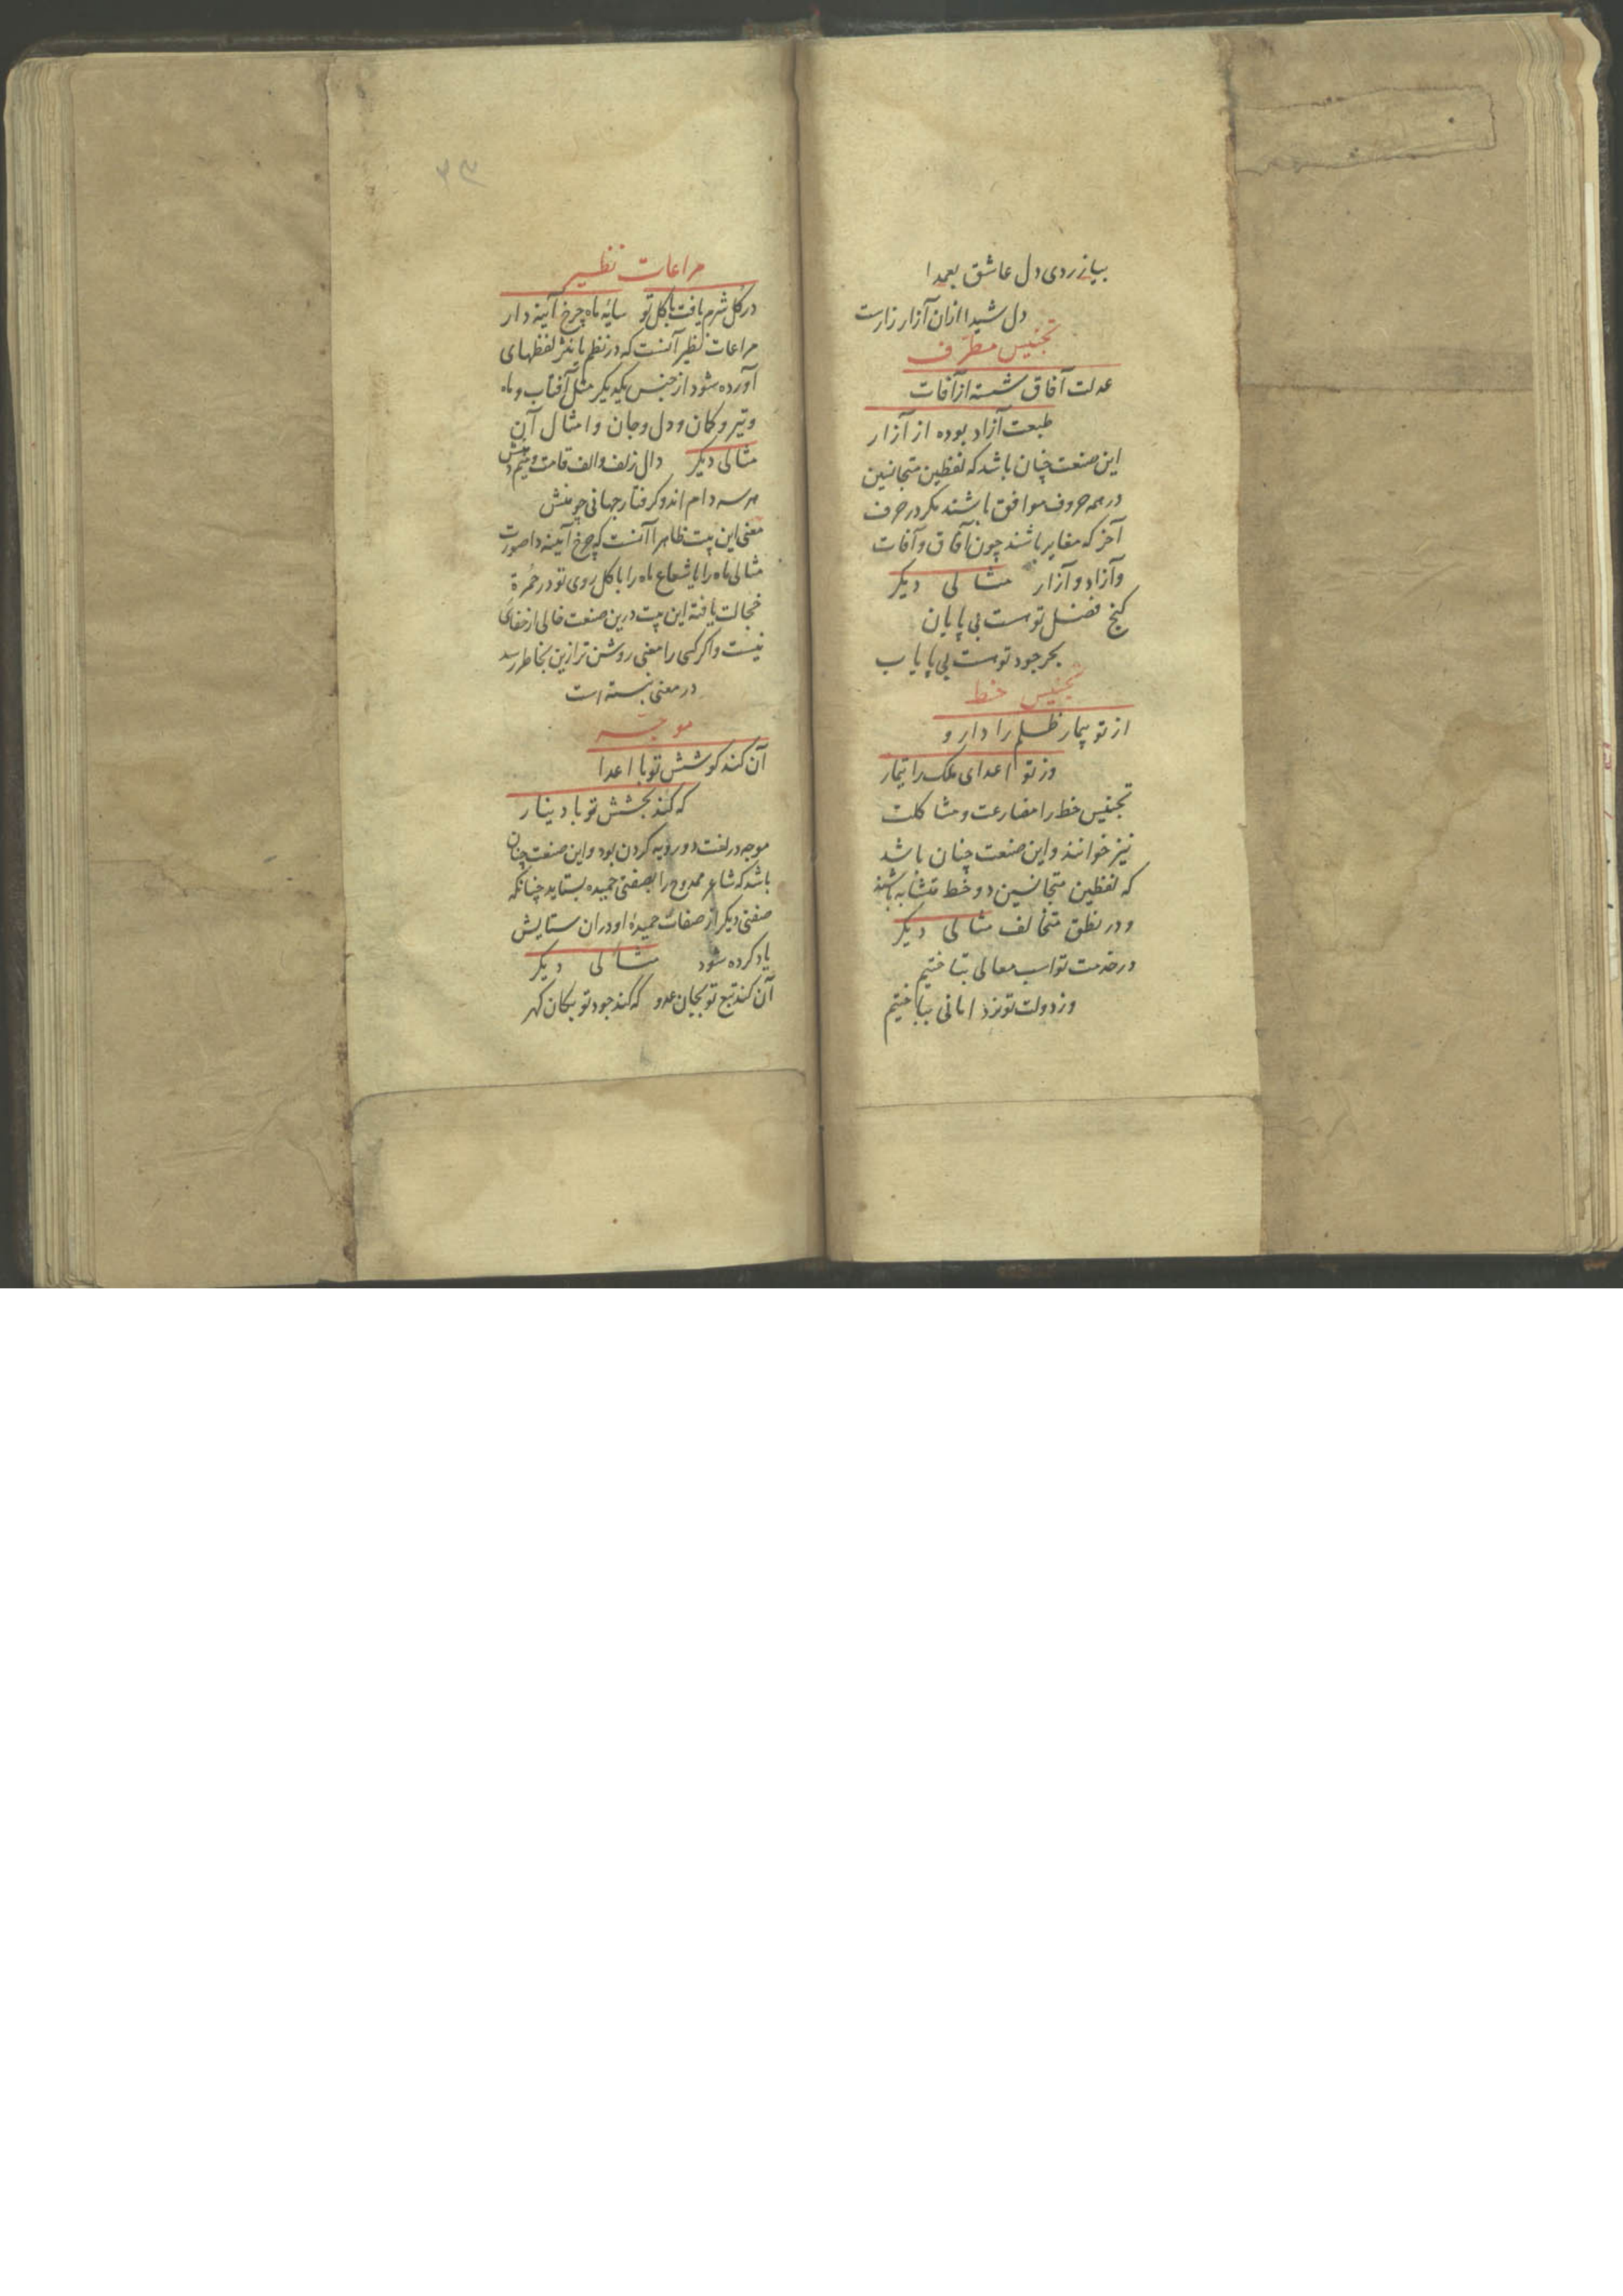 بیازردی دل عاشق بعمدا
دل شیدا ازان آزار زارست
تجنیس مطرّف
عدلت آفاق شسته از آفات
طبعت آزاد بوده از آزار
این صنعت چنان باشد که لفظین متجانسین
در همه حروف موافق باشند مکر در حرف
آخر که مغایر باشند چون آفاق و آفات
و آزاد و آزار مثالی دیکر
کنج فضل توست بی پایان
بحر جود توست بی پایاب
تجنیس خط
از تو بیمار ظلم را دارو
وز تو اعدای ملک را تیمار
تجنیس خط را مضارعت و مشاکلت
نیز خوانند و این صنعت چنان باشد
که لفظین متجانسین در خط متشابه باشند
و در نطق متخالف مثالی دیکر
در خدمت تو اسب معالی بتاختیم
وز دولت تو نرد امانی بباختیم
۲۳
مراعات نظیر
در کل شرم یافت با کل تو سایه ماه چرخ آئینه دار
مراعات نظیر آنست که در نظم یا نثر لفظهای
آورده شود از جنس یکدیکر مثل آفتاب و ماه
و تیر و کمان و دل و جان و امثال آن
مثالی دیکر دال زلف و الف قامت و میم دهنش
هر سه دام اند و کرفتار جهانی چو منش
معنی این بیت ظاهرا آنست که چرخ آیینه دار صورت
مثالی ماه را یا شعاع ماه را با کل روی تو در حُمرة
خجالت یافته این بیت درین صنعت خالی از خفای
نیست و اکر کسی را معنی روشن تر ازین بخاطر رسد
در معنی نبسته است
موجّه
آن کند کوشش تو با اعدا
که کند بخشش تو با دینار
موجه در لغت دو رویه کردن بود و این صنعت چنان
باشد که شاعر ممدوح را بصفتی حمیده بستاید چنانکه
صفتی دیکر از صفات حمیدهٔ او در آن ستایش
یاد کرده شود مثالی دیکر
آن کند تیغ تو بجان عدو که کند جود تو بکان کهر